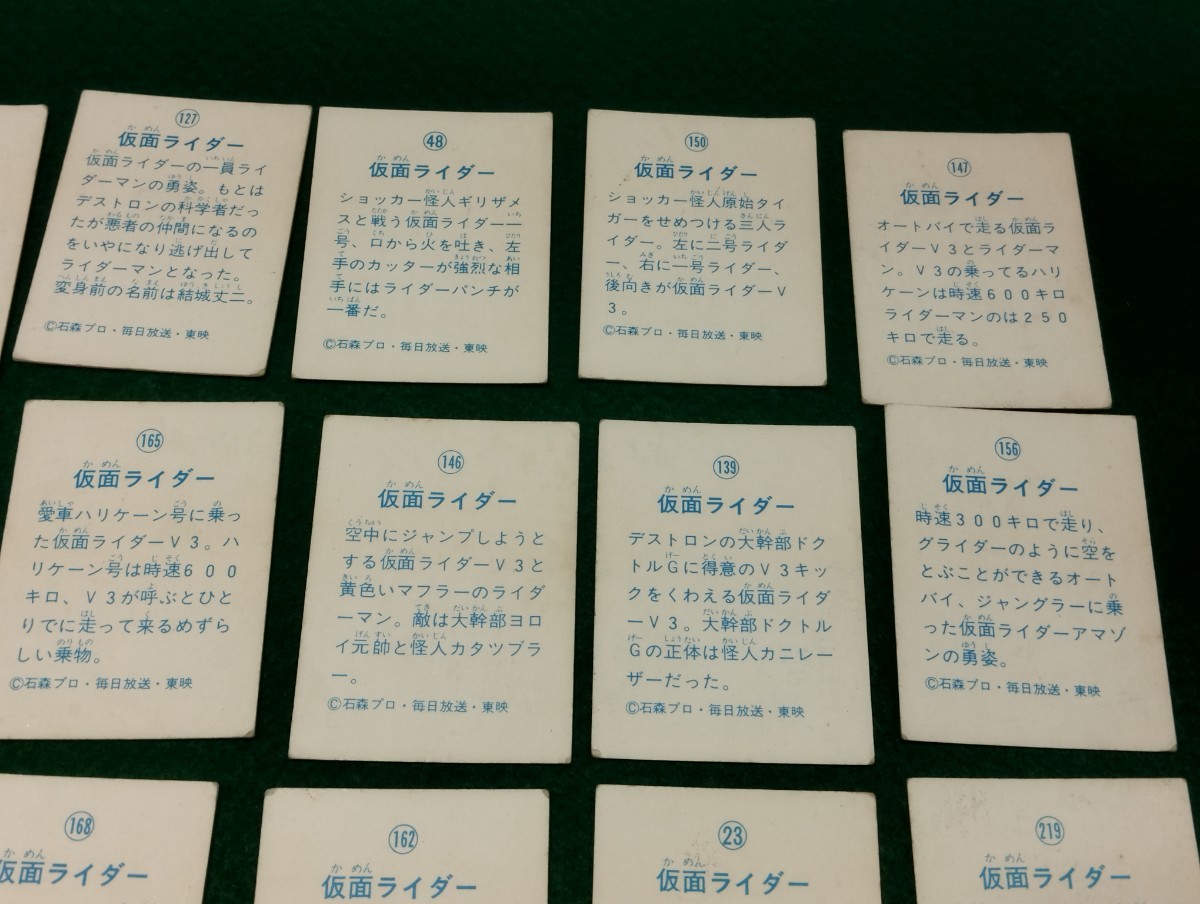 127
仮面ライダー
仮面ライダーの一員ライ
ダーマンの勇姿。もとは
デストロンの科学者だっ
たが悪者の仲間になるの
をいやになり逃げ出して
ライダーマンとなった。
変身前の名前は結城丈二。
©石森プロ・毎日放送・東映
48
仮面ライダー
ショッカー怪人ギリザメ
スと戦う仮面ライダー一
号、口から火を吐き、左
手のカッターが強烈な相
手にはライダーパンチが
一番だ。
©石森プロ・毎日放送・東映
150
仮面ライダー
ショッカー怪人原始タイ
ガーをせめつける三人ラ
イダー。左に二号ライダ
ー、右に一号ライダー、
後向きが仮面ライダーV
3。
©石森プロ・毎日放送・東映
147
仮面ライダー
オートバイで走る仮面ラ
イダーV3とライダーマ
ン。V3の乗ってるハリ
ケーンは時速600キロ
ライダーマンのは250
キロで走る。
©石森プロ・毎日放送・東映
165
仮面ライダー
愛車ハリケーン号に乗っ
た仮面ライダーV3。ハ
リケーン号は時速600
キロ、V3が呼ぶとひと
りでに走って来るめずら
しい乗物。
©石森プロ・毎日放送・東映
146
仮面ライダー
空中にジャンプしようと
する仮面ライダーV3と
黄色いマフラーのライダ
ーマン。敵は大幹部ヨロ
イ元帥と怪人カタツブラ
ー。
©石森プロ・毎日放送・東映
139
仮面ライダー
デストロンの大幹部ドク
トルGに得意のV3キッ
クをくわえる仮面ライダ
ーV3。大幹部ドクトル
Gの正体は怪人カニレー
ザーだった。
©石森プロ・毎日放送・東映
156
仮面ライダー
時速300キロで走り、
グライダーのように空を
とぶことができるオート
バイ、ジャングラーに乗
った仮面ライダーアマゾ
ンの勇姿。
©石森プロ・毎日放送・東映
168
仮面ライダー
162
仮面ライダー
23
仮面ライダー
219
仮面ライダー